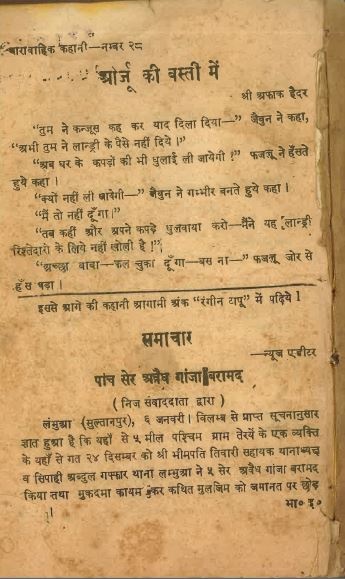 धारावाहिक कहानी—नम्बर २८
ओर्जू की वस्ती में
श्री अफाक हैदर
“तुम ने कन्जूस कह कर याद दिला दिया—” जैबुन ने कहा,
“अभी तुम ने लान्ड्री के पैसे नहीं दिये।”
“अब घर के कपड़ों की भी धुलाई ली जायेगी !” फजलू ने हँसते
हुये कहा ।
“क्यों नहीं ली जायेगी—” जैबुन ने गम्भीर बनते हुये कहा ।
“मैं तो नहीं दूँगा।”
“तब कहीं और अपने कपड़े धुलवाया करो—मैंने यह लान्ड्री
रिश्तेदारो के लिये नहीं खोली है !”
“अच्छा बाबा—कल चुका दूँगा—बस ना—” फजलू जोर से
हँस पड़ा ।
इससे आगे की कहानी आगामी अंक “रंगीन टापू” में पढ़िये !
समाचार
—न्यूज एडीटर
पांच सेर अवैध गांजा बरामद
( निज संवाददाता द्वारा )
लंभुआ (सुल्तानपुर), ६ जनवरी। विलम्ब से प्राप्त सूचनानुसार
ज्ञात हुआ है कि यहाँ से ५ मील पश्चिम ग्राम तेरयें के एक व्यक्ति
के यहाँ से गत २४ दिसम्बर को श्री भीमपति तिवारी सहायक थानाध्यक्ष
व सिपाही अब्दुल गफ्फार थाना लम्भुआ ने ५ सेर अवैध गांजा बरामद
किया तथा मुकदमा कायम कर कथित मुलजिम को जमानत पर छोड़
भा० द०